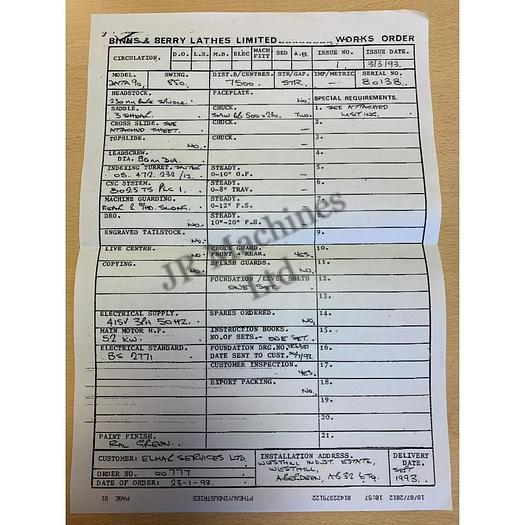 BINNS & BERRY LATHES LIMITED WORKS ORDER
CIRCULATION. D.O. L.S. M.B. ELEC MACH FITT SED A.B. ISSUE NO. 1 ISSUE DATE. 3/3/93.
MODEL. DATA 90 SWING. 850. DIST.B/CENTRES. 7500 STR/GAP. STR. IMP/METRIC SERIAL NO. 80138.
HEADSTOCK. FACEPLATE. NO. SPECIAL REQUIREMENTS.
230 mm BORE SPINDLE.
SADDLE. CHUCK. 1. SEE ATTACHED
3 SHEAR. TWO. LISTING.
CROSS SLIDE. SEE CHUCK. 2.
ATTACHED SHEET.
TOPSLIDE. CHUCK. 3.
NO.
LEADSCREW. 4.
DIA. 80mm DIA.
INDEXING TURRET. STEADY. 5.
05. 472. 232/12. 0-10" O.F.
CNC SYSTEM. STEADY. 6.
8025 TS PLC 1. 0-8" TRAV.
MACHINE GUARDING. STEADY. 7.
REAR & 0-12" F.S.
DRO. STEADY.
NO. 10"-20" F.S.
ENGRAVED TAILSTOCK.
NO.
LIVE CENTRE. CHUCK GUARD. 10.
NO FRONT - REAR. YES.
COPYING. SPLASH GUARDS. 11.
NO. NO.
FOUNDATION / LEVEL BOLTS 12.
ONE SET.
13.
ELECTRICAL SUPPLY. SPARES ORDERED. 14.
415V 3PH 50HZ. NO.
MAIN MOTOR H.P. INSTRUCTION BOOKS. 15.
52 KW. NO.OF SETS- ONE SET.
ELECTRICAL STANDARD. FOUNDATION DRG.NO. 16.
BS 2771 DATE SENT TO CUST.
CUSTOMER INSPECTION. 17.
YES.
EXPORT PACKING. 18.
NO.
19.
20.
PAINT FINISH. 21.
RAL GREEN.
CUSTOMER: ELMAR SERVICES LTD. INSTALLATION ADDRESS. DELIVERY DATE.
WESTHILL INDUST. ESTATE, SEPT
ORDER NO. 00777 WESTHILL, 1993.
DATE OF ORDER: 23-1-93. ABERDEEN, AB32 6TQ.
18/07/2012 10:57 0142379122 PTHEALYINDUSTRIES PAGE 01
JP Machines
Ltd